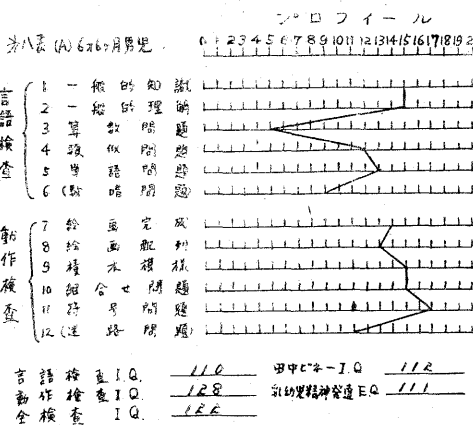 プロフィール
第八表 (A) 6才6ヶ月男児
0 1 2 3 4 5 6 7 8 9 10 11 12 13 14 15 16 17 18 19 2
言語検査
1 一般的知識
2 一般的理解
3 算数問題
4 類似問題
5 単語問題
6 (数唱問題)
動作検査
7 絵画完成
8 絵画配列
9 積木模様
10 組合せ問題
11 符号問題
12 (迷路問題)
言語検査 I.Q. 110 田中ビネー I.Q 112
動作検査 I.Q. 128 乳幼児精神発達 E.Q 111
全検査 I.Q. 122